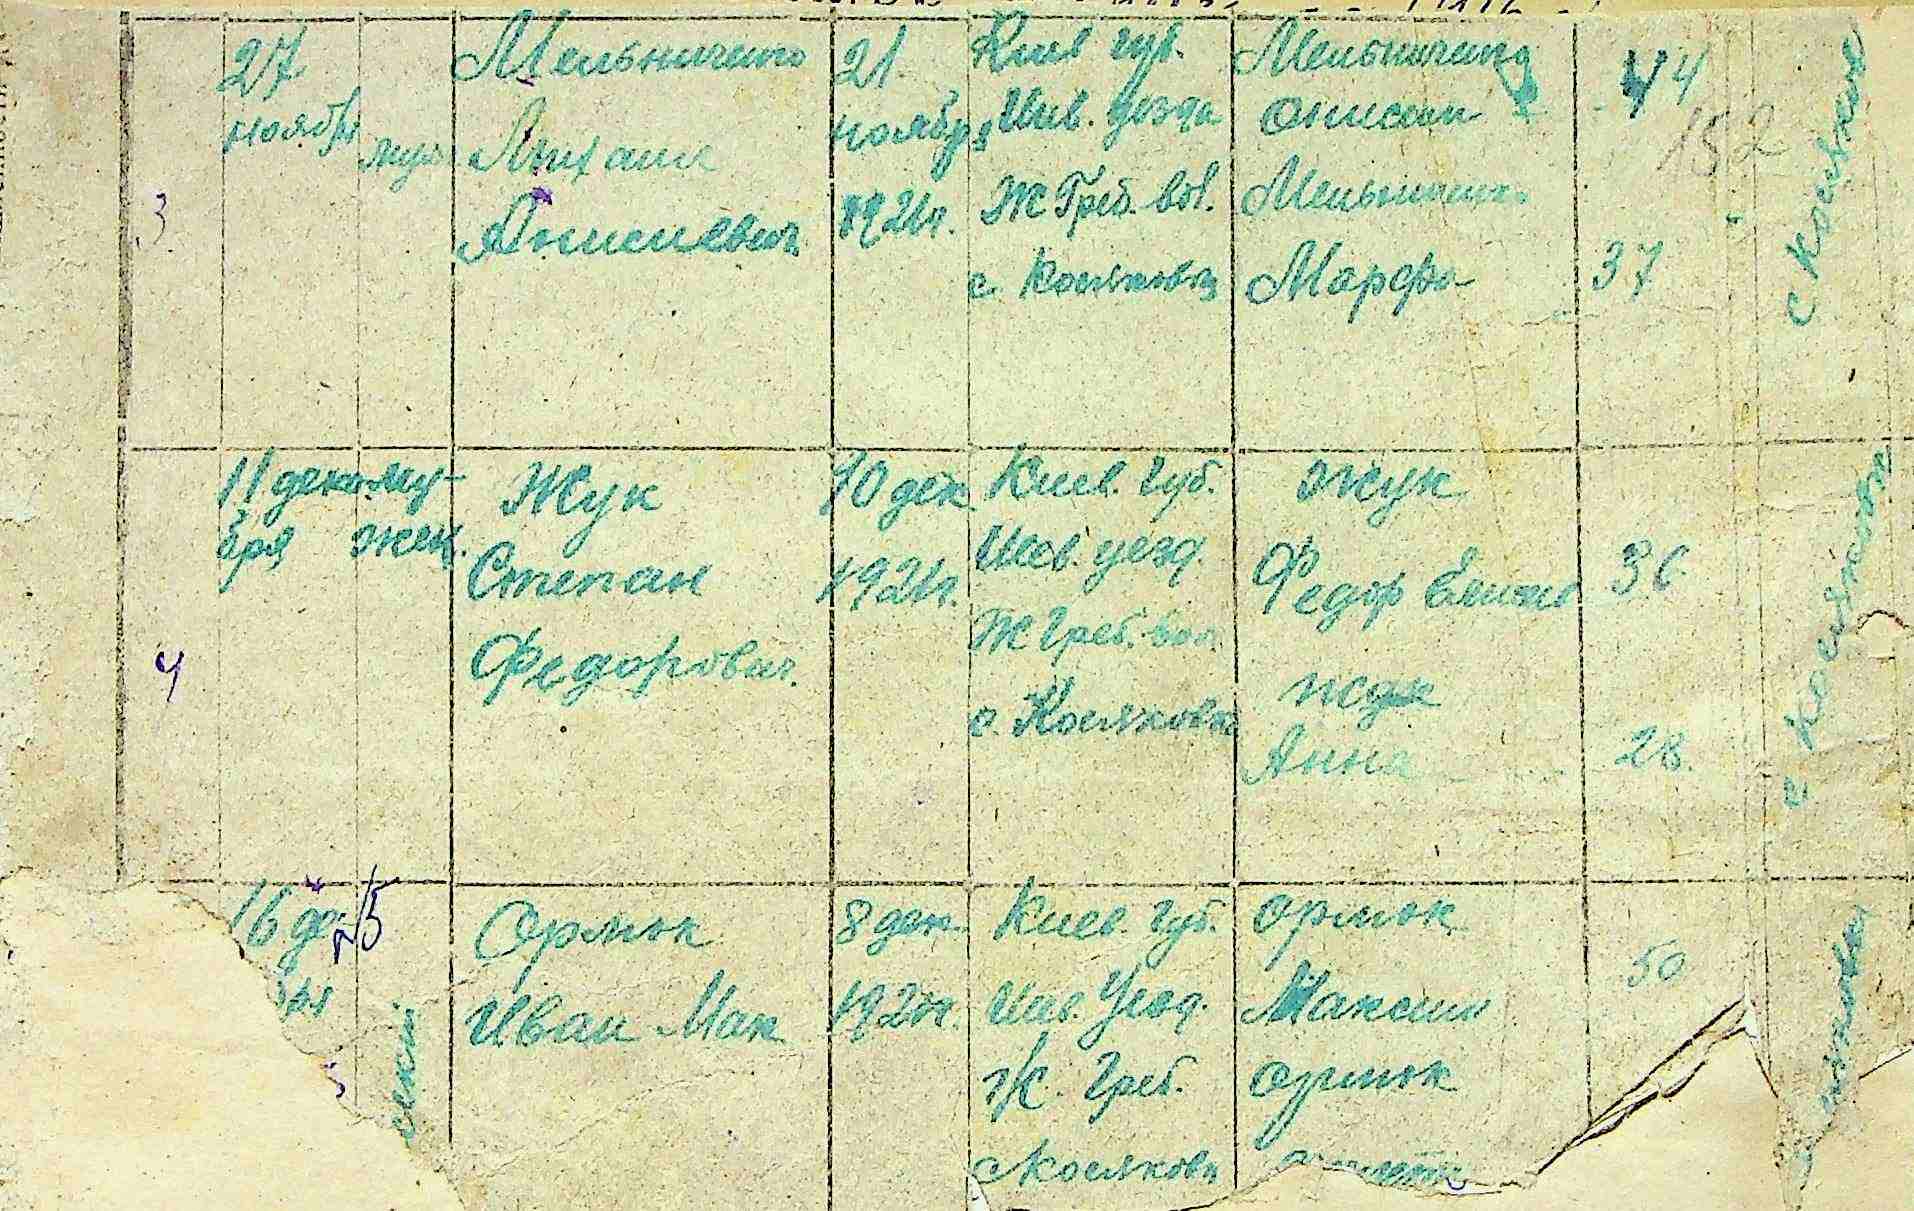 27
ноября
муж
3
Мельниченко
Михаил
Анисиевич
21
ноября
1921г.
Киев губ.
Шев. уезда
Ж Греб. вол.
с Косяковка
Мельниченко
Онисим
Мельниченко
Марфа
44
37
152
с Косяковка
11 декабря
муж-
жен.
4
Жук
Степан
Федорович.
10 дек.
1921г.
Киев. губ.
уезд.
Ж Греб. вол.
с. Косяковка
Жук
Федор
Жук
Анна
36
28.
с Косяковка
16 де
бря
5
Ормюк
Иван Мак
8 дек.
192
Киев. губ.
Уезд.
Ж. Греб.
с Косякова
Ормюк
Максим
Ормюк
50